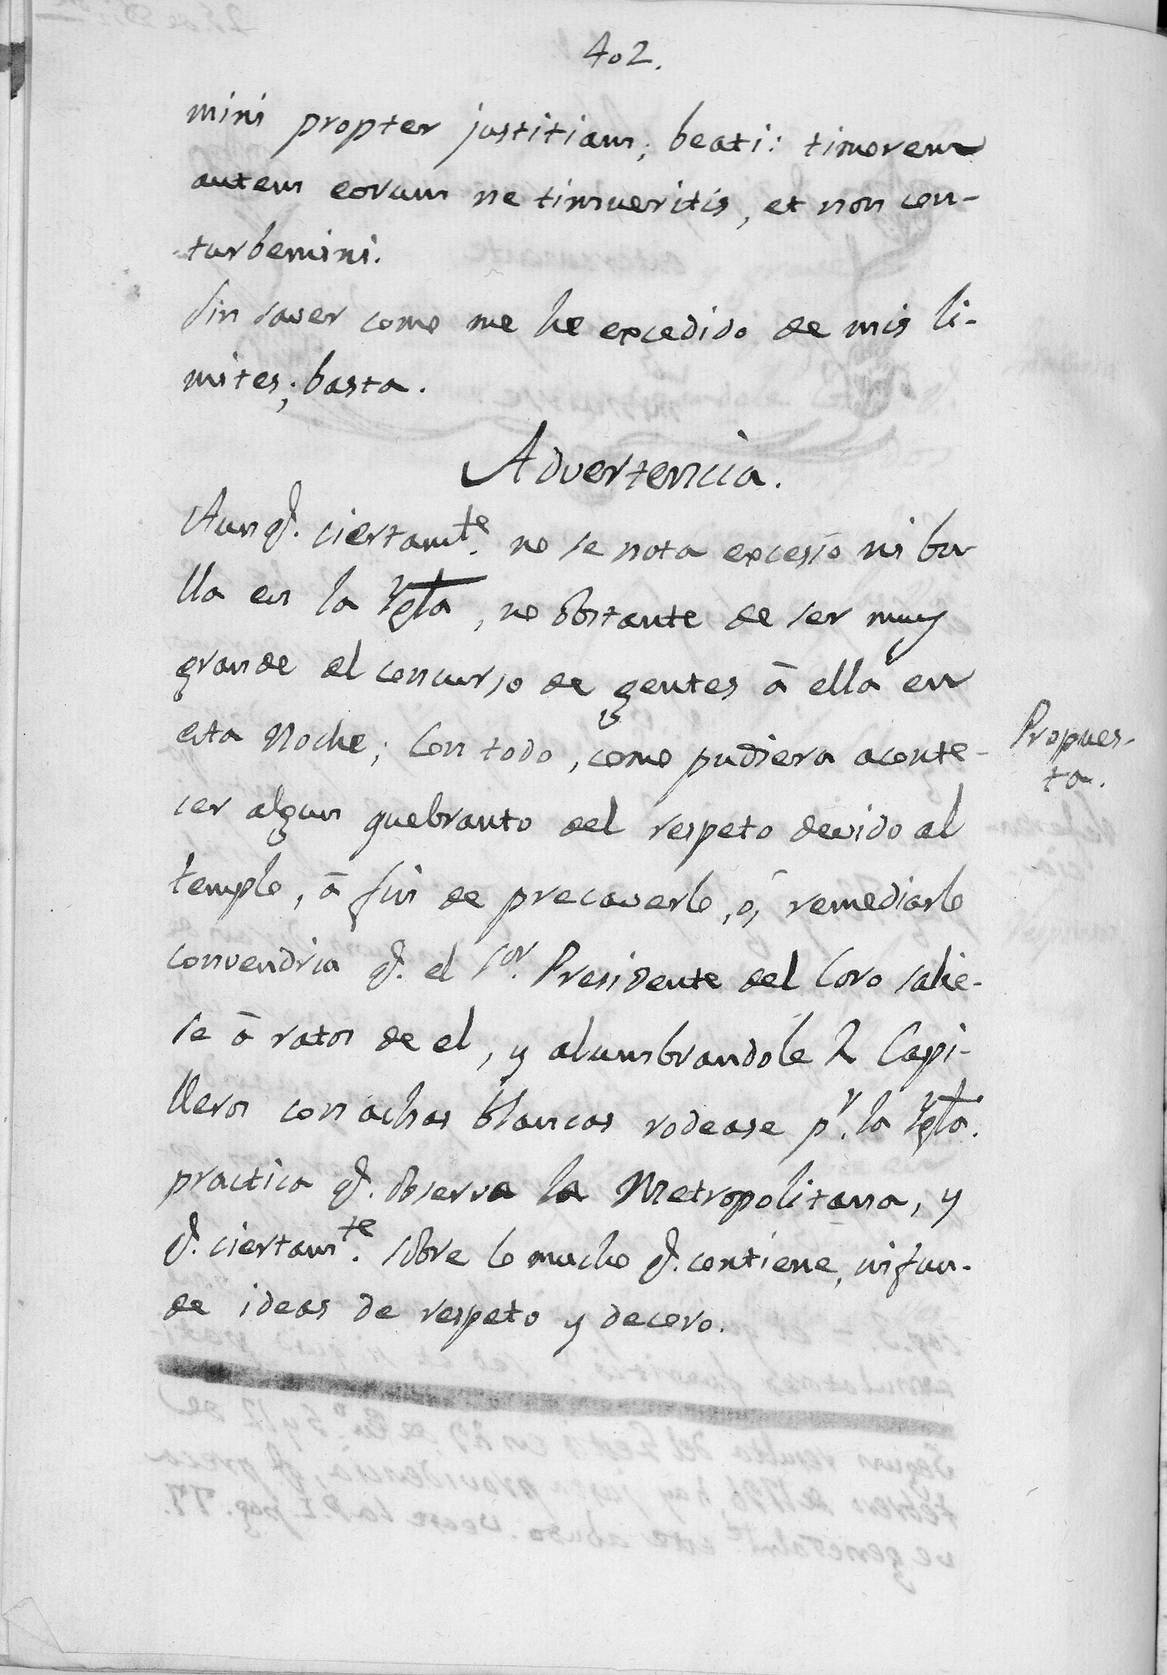 402.
mini propter justitiam; beati: timorem
autem eorum ne timueritis, et non con-
turbemini.
Sin saver como me he excedido de mis li-
mites; basta.
Advertencia.
Aunq.e ciertamte. no se nota excesso ni bu
lla en la Ygla, no obstante de ser muy
grande el concurso de gentes â ella en
esta Noche; Con todo, como pudiera aconte-
cer algun quebranto del respeto devido al
templo, â fin de precaverlo, ó, remediarlo
convendria q. el Sor. Presidente del Coro salie-
se â ratos de el, y alumbrandole 2 Capi-
lleros con achas blancas rodease pr. la Ygla.
practica q. observa la Metropolitana, y
q. ciertamte. sobre lo mucho q. contiene, infun-
de ideas de respeto y decoro.
Propues-
ta.